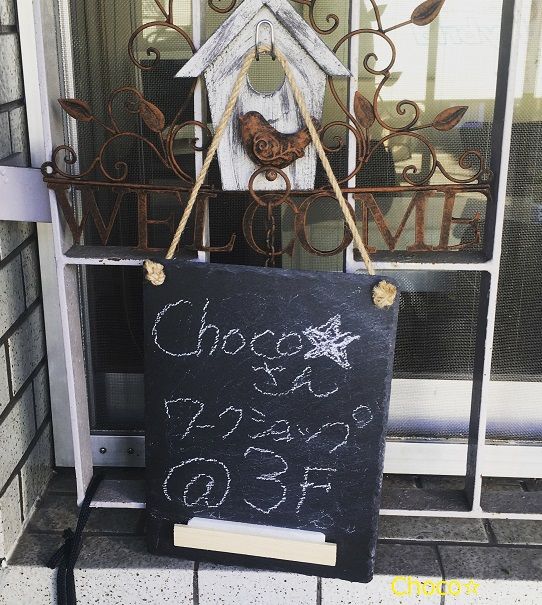 WELCOME
Choco☆
さん
ワークショップ
@3F
Choco☆